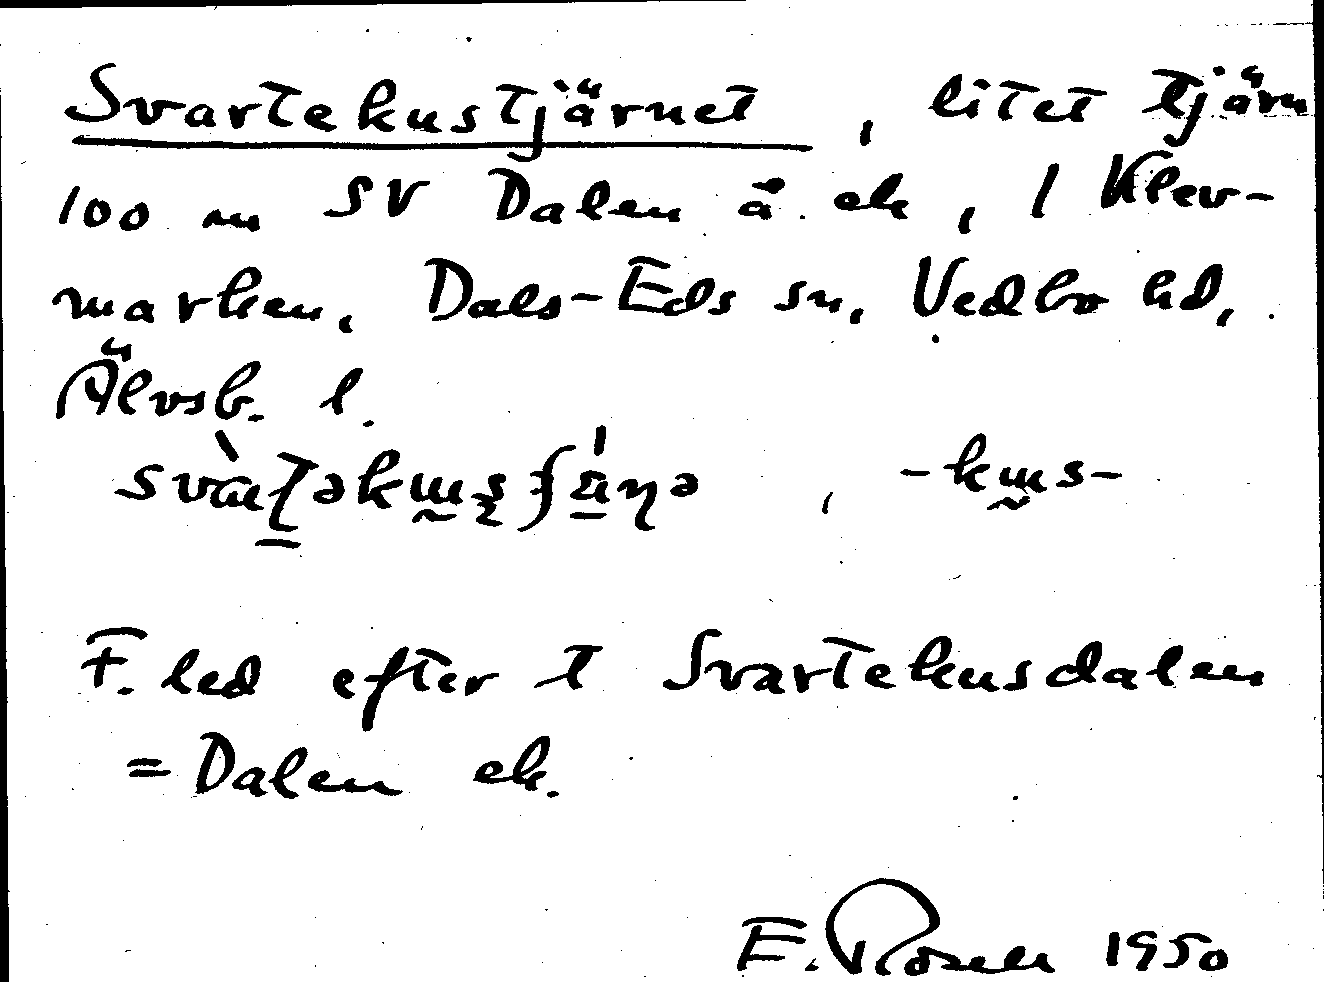 Svartekustjärnet, litet tjärn
100 m SV Dalen ä. ek, 1 Klev-
marken, Dals-Eds sn, Vedbo hd,
Älvsb. l.
-kus-
F. led efter t Svartekusdalen
= Dalen ek.
E. Rosell 1950